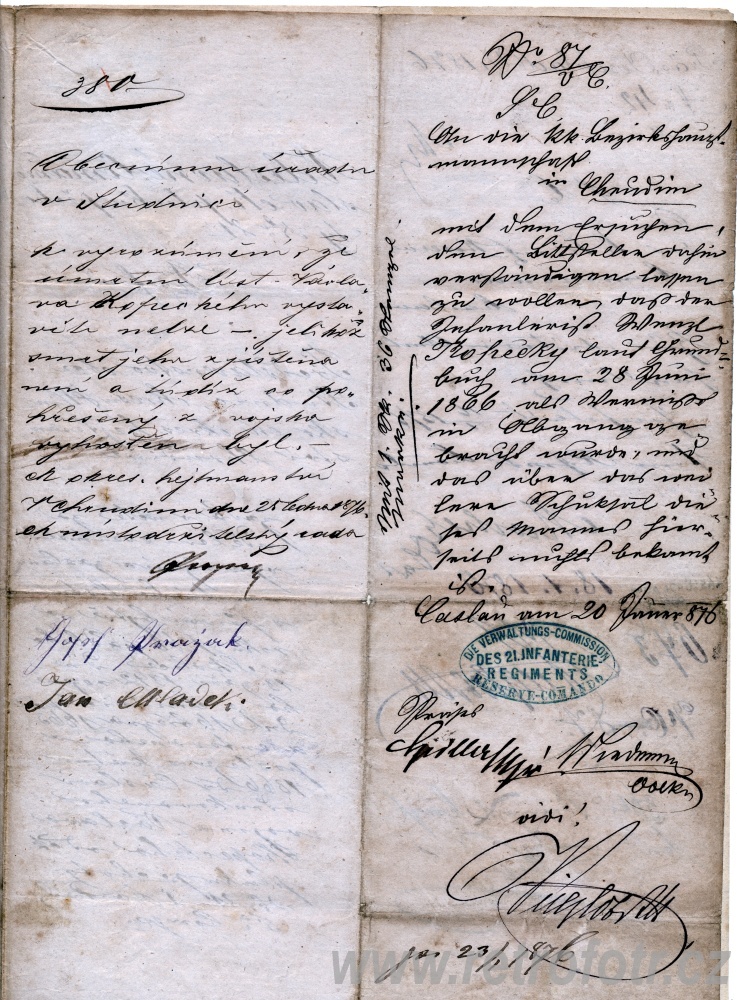 380
Obecnímu úřadu
v Studnici
k vyrozumění, že
úmrtní list Václa-
va Kopeckého vysta-
viti nelze –, jelikož
smrt jeho zjištěna
není a tudíž co po-
hřešený z vojska
vyhostěn byl. –
C. k. okres. hejtmanství
v Chrudimi dne 25 ledna 876
c. k. místodržitelský rada
Josef Pražák.
Jan Chladek
No 87/VC.
An die kk Bezirkshaupt-
mannschaft
in Chrudim
mit dem Ersuchen,
den Bittsteller dahin
verständigen lassen
zu wollen, daß der
Infanterist Wenzl
Kopecky laut Grund-
buch am 28 Juni
1866 als Vermißt
in Abgang ge-
bracht wurde, und
das über das wei-
tere Schiksal die-
ses Mannes hier-
seits nichts bekant
ist.
Caslau am 20 Jänner 876
DIE VERWALTUNGS-COMMISSION
DES 21. INFANTERIE-
REGIMENTS
RESERVE-COMANDO
Präses
Wiedmann
vidi!
23/1 1876
www.retrofotr.cz